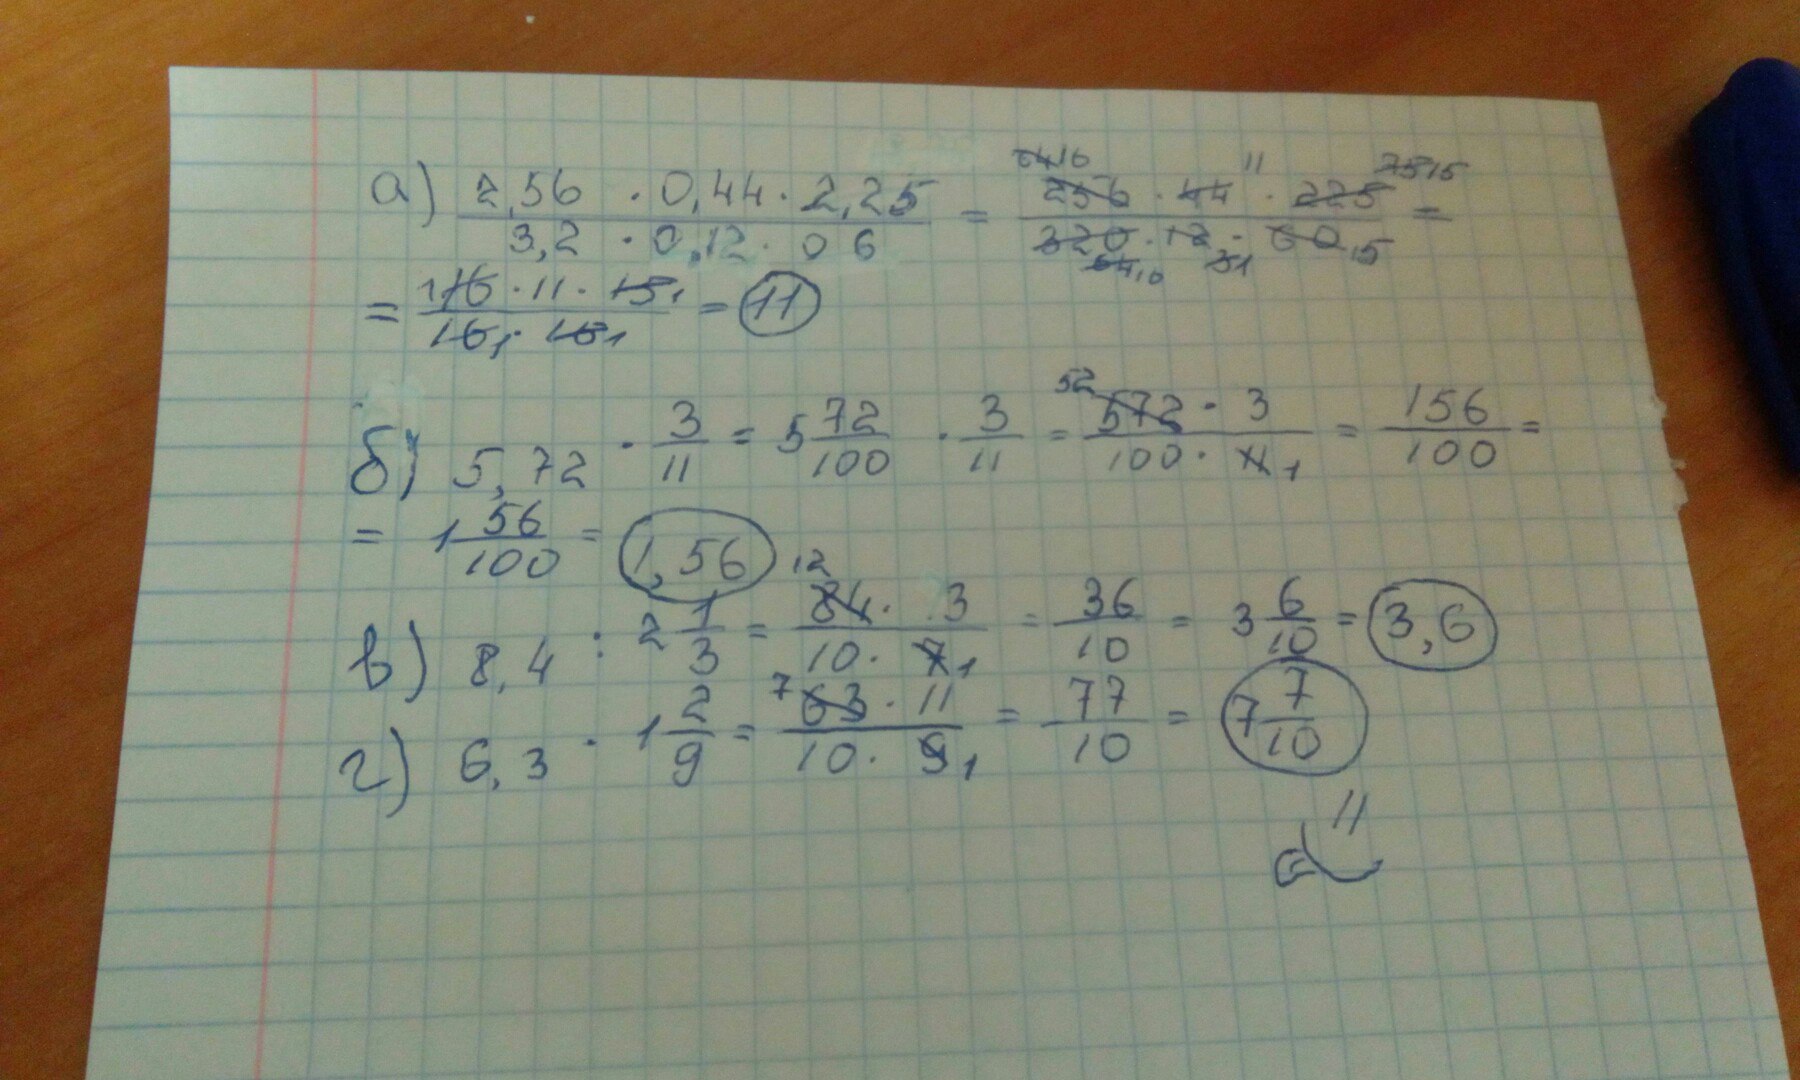 а) 2,56 · 0,44 · 2,25 / 3,2 · 0,12 · 0 6 = 256 · 44 11 · 225 75 15 / 320 64 · 12 3 1 · 60 15 =
= 1 16 · 11 · 15 1 / 16 1 · 15 1 = 11
б) 5,72 · 3/11 = 5 72/100 · 3/11 = 52 572 · 3 / 100 · 11 1 = 156/100 =
= 1 56/100 = 1,56
в) 8,4 : 2 1/3 = 12 84 · 3 / 10 · 7 1 = 36/10 = 3 6/10 = 3,6
г) 6,3 · 1 2/9 = 7 63 · 11 / 10 · 9 1 = 77/10 = 7 7/10